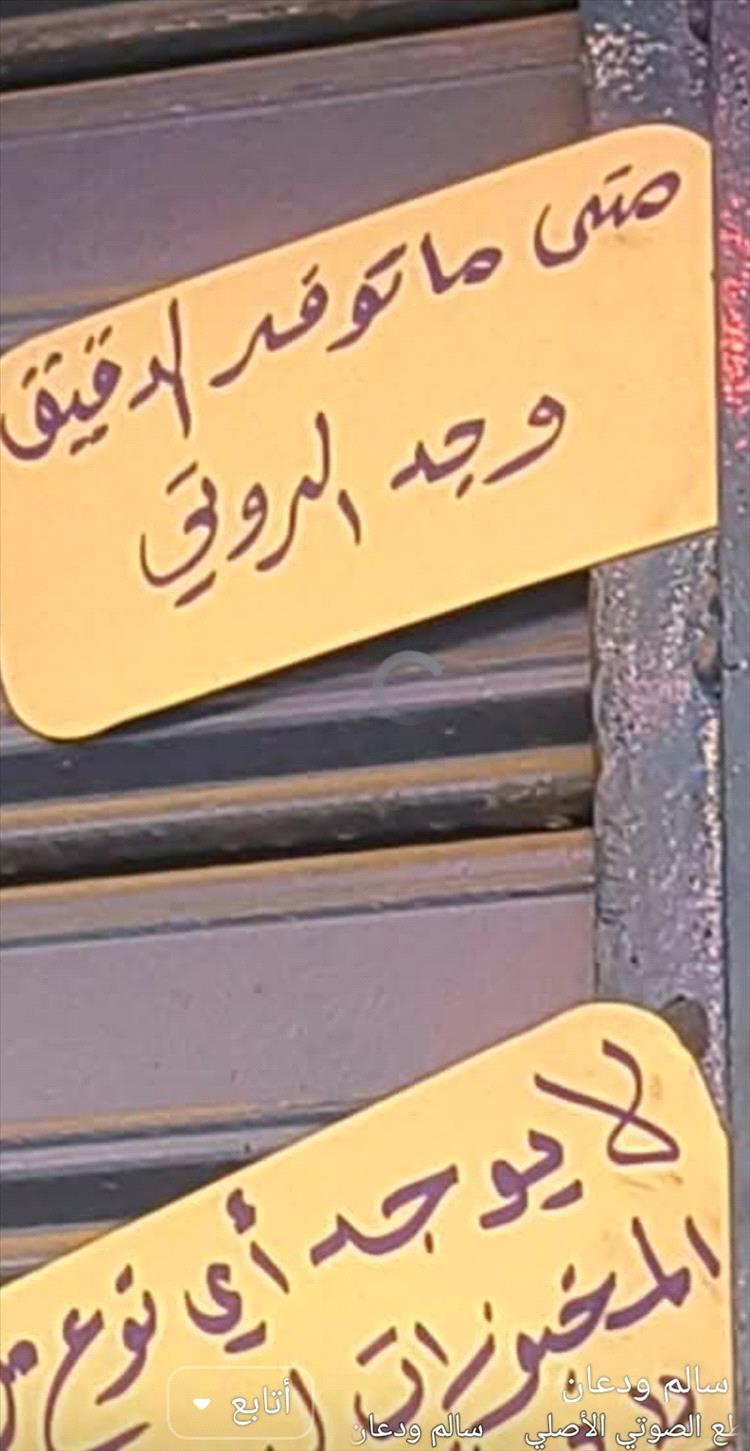 متى ما توفر الدقيق
وجد الروتي
لا يوجد أي نوع من
المخبوزات
سالم ودعان
أتابع
الصوتي الأصلي سالم ودعان